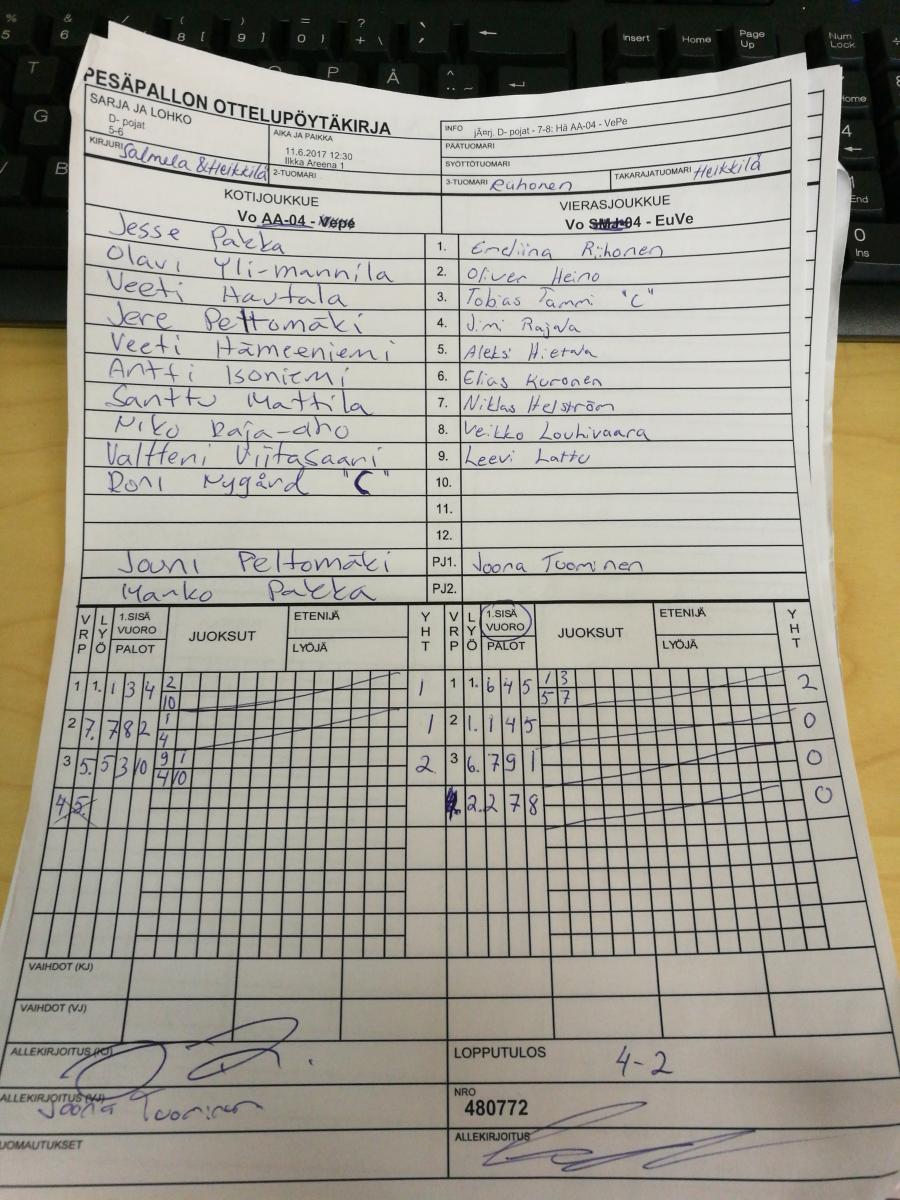 PESÄPALLON OTTELUPÖYTÄKIRJA
SARJA JA LOHKO
D- pojat
5-6
AIKA JA PAIKKA
11.6.2017 12:30
Ilkka Areena 1
INFO jÄ¤rj. D- pojat - 7-8: Hä AA-04 - VePe
PÄÄTUOMARI
SYÖTTÖTUOMARI
KIRJURI Salmela & Heikkilä
2-TUOMARI
3-TUOMARI Riihonen
TAKARAJATUOMARI Heikkilä
KOTIJOUKKUE
Vo AA-04 - Vepe
VIERASJOUKKUE
Vo SMJ-04 - EuVe
Jesse Pakka 1. Emeliina Riihonen
Olavi Yli-mannila 2. Oliver Heino
Veeti Hautala 3. Tobias Tammi "C"
Jere Peltomäki 4. Jimi Rajala
Veeti Hämeeniemi 5. Aleksi Hietala
Antti Isoniemi 6. Elias Kuronen
Santtu Mattila 7. Niklas Helström
Niko Raja-aho 8. Veikko Louhivaara
Valtteri Viitasaari 9. Leevi Lattu
Roni Nygård "C" 10.
11.
12.
Jouni Peltomäki PJ1. Joona Tuominen
Marko Pakka PJ2.
VRP LYÖ 1.SISÄ VUORO PALOT JUOKSUT ETENIJÄ LYÖJÄ YHT VRP LYÖ 1.SISÄ VUORO PALOT JUOKSUT ETENIJÄ LYÖJÄ YHT
1 1. 1 3 4 2 1 1 1. 6 4 5 1 3 2
10 5 7
2 7. 7 8 2 1 1 2 1. 1 4 5 0
4
3 5. 5 3 10 9 1 2 3 6. 7 9 1 0
4 10
4 5. 4. 2. 2 7 8 0
VAIHDOT (KJ)
VAIHDOT (VJ)
ALLEKIRJOITUS (KJ)
LOPPUTULOS 4-2
ALLEKIRJOITUS (VJ)
Joona Tuominen
NRO
480772
HUOMAUTUKSET
ALLEKIRJOITUS